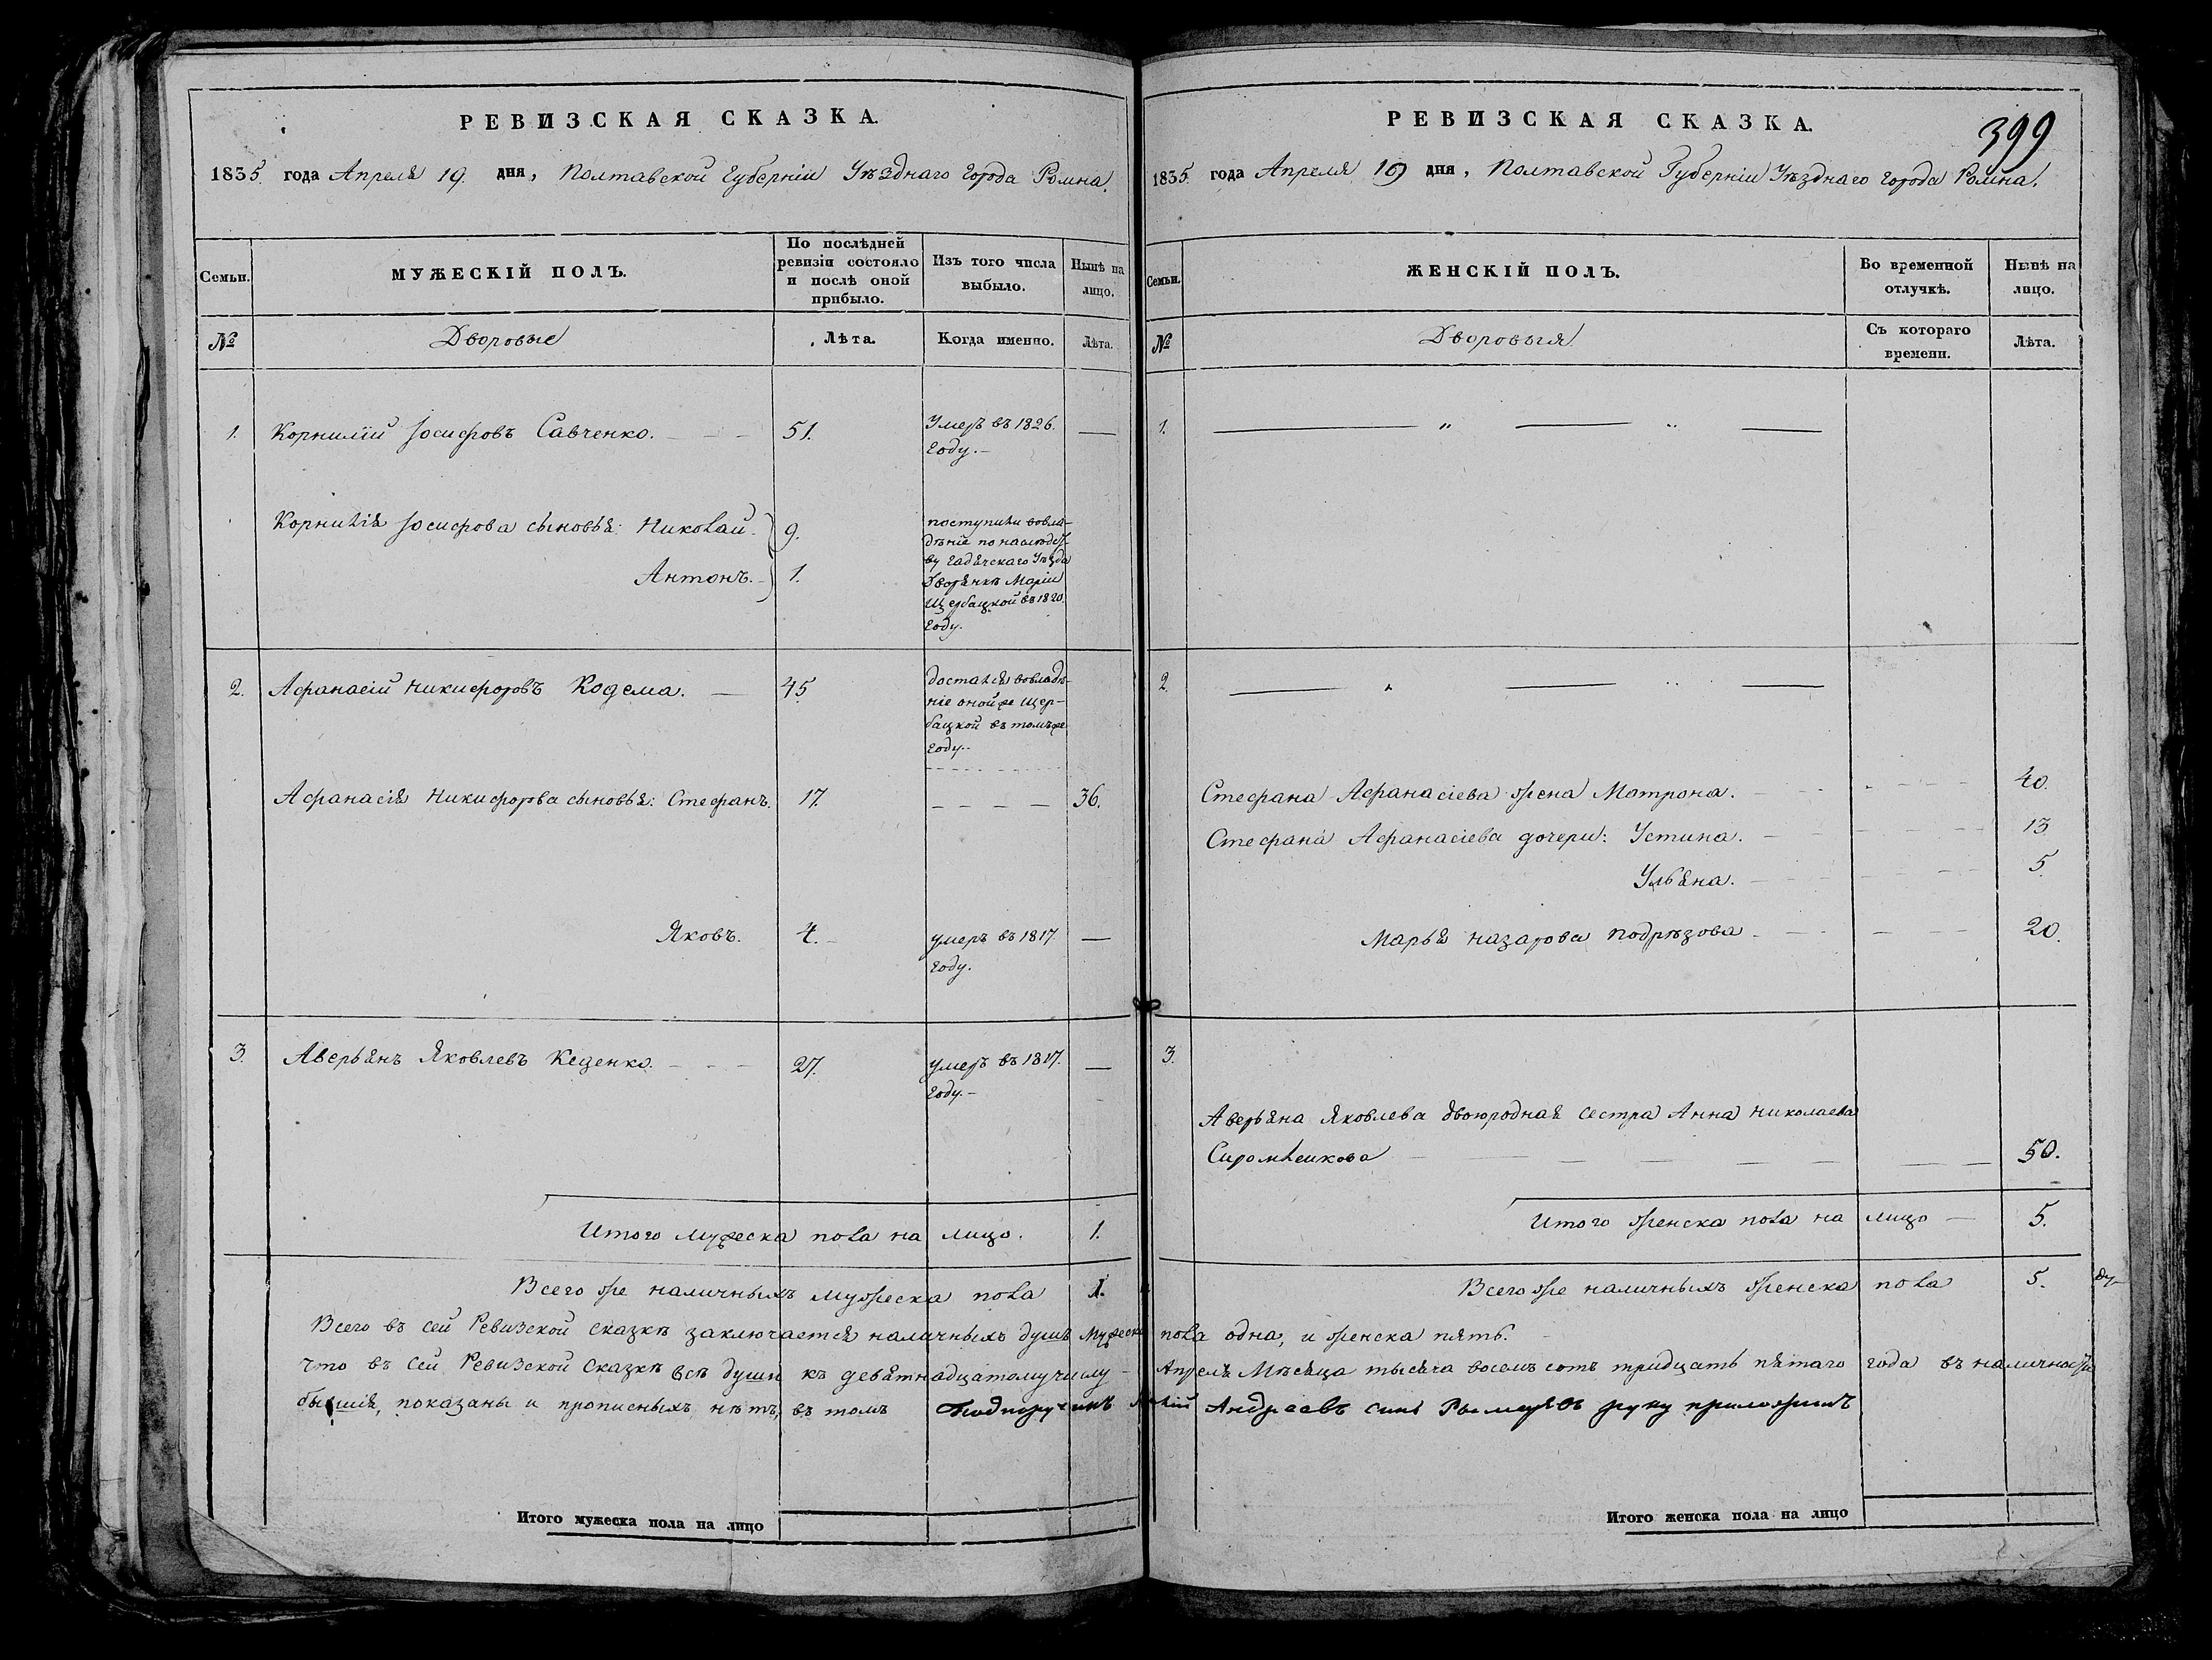 РЕВИЗСКАЯ СКАЗКА.
1835 года Апреля 19 дня, Полтавской Губерніи Уѣзднаго Города Ромна.
Семьи.
МУЖЕСКІЙ ПОЛЪ.
По послѣдней
ревизіи состояло
и послѣ оной
прибыло.
Изъ того числа
выбыло.
Нынѣ на
лицо.
№
Дворовые
Лѣта.
Когда именно.
Лѣта.
1. Корнилій Іосифовъ Савченко. 51. Умеръ въ 1826.
году.
Корнилія Іосифова сыновья: Николай. 9.
Антонъ. 1.
поступили вовла-
дѣніе по наслѣдст-
ву Гадячскаго Уѣзда
Дворянкѣ Маріи
Щербацкой въ 1820.
году.
2. Афанасій Никифоровъ Кодема. 45.
достался вовладѣ-
ніе оной же Щер-
бацкой въ томъ же
году.
Афанасія Никифорова сыновья: Стефанъ. 17. 36.
Яковъ. 4. умеръ въ 1817
году.
3. Аверьянъ Яковлевъ Кеценко. 27. умеръ въ 1817.
году.
Итого мужеска пола на лицо. 1.
Всего же наличныхъ мужеска пола 1.
Итого мужеска пола на лицо
РЕВИЗСКАЯ СКАЗКА.
399
1835 года Апреля 19 дня, Полтавской Губерніи Уѣзднаго города Ромна.
Семьи.
ЖЕНСКІЙ ПОЛЪ.
Во временной
отлучкѣ.
Нынѣ на
лицо.
№
Дворовыя
Съ котораго
времени.
Лѣта.
1.
2.
Стефана Афанасіева жена Матрона. 40.
Стефана Афанасіева дочери: Устина. 13
Ульяна. 5
Марья Назарова Подрѣзова 20.
3.
Аверьяна Яковлева двоюродная сестра Анна Николаева
50.
Итого женска пола на лицо 5.
Всего же наличныхъ женска пола 5.
Всего въ сей Ревизской сказкѣ заключается наличныхъ душъ мужеска пола одна, и женска пять.
что въ сей Ревизской сказкѣ всѣ души къ девятнадцатому числу Апреля Мѣсяца тысяча восемь сотъ тридцать пятаго года въ наличности
бывшія, показаны и прописныхъ нѣтъ, въ томъ Подпоручикъ Андреевъ синъ руку приложилъ
Итого женска пола на лицо